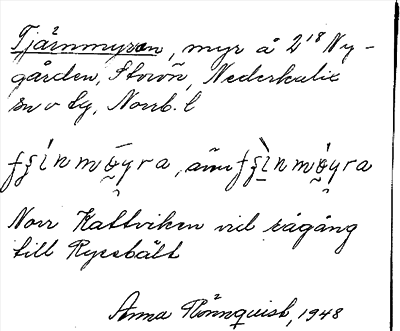 Tjärnmyran, myr å 2¹⁸ Ny-
gården, Storön, Nederkalix
sn o Lg, Norrb. l
även
Norr Kattviken vid rågång
till Ryssbält
Anna Rönnquist, 1948